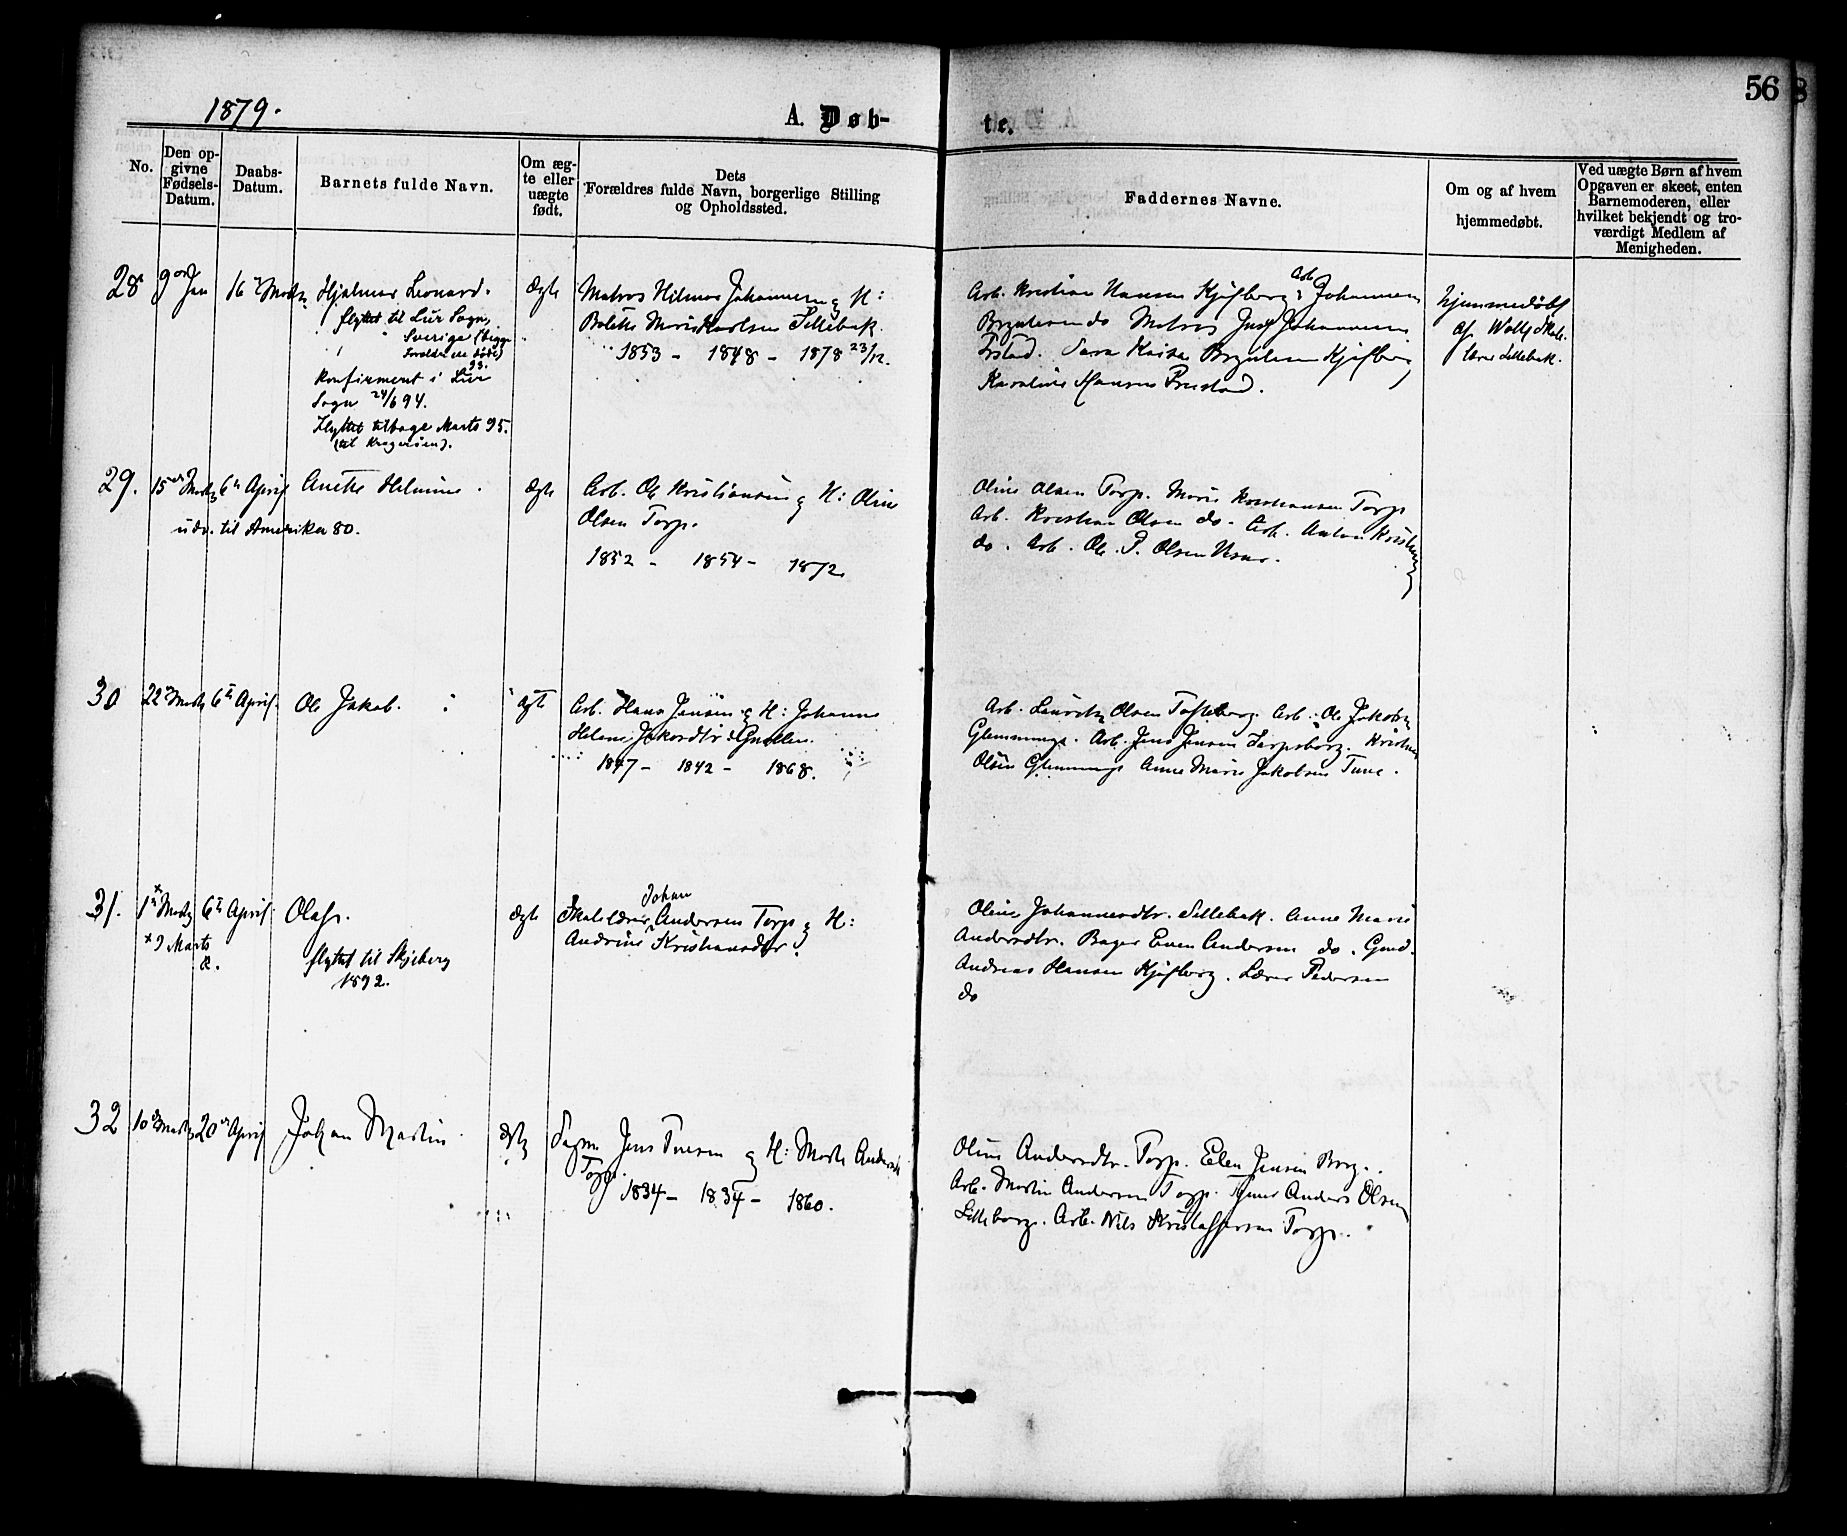 56
8
1879.
A. Døb-
te.
No.
Den op-
givne
Fødsels-
Datum.
Daabs-
Datum.
Barnets fulde Navn.
Om æg-
te eller
uægte
født.
Dets
Forældres fulde Navn, borgerlige Stilling
og Opholdssted.
Faddernes Navne.
Om og af hvem
hjemmedøbt.
Ved uægte Børn af hvem
Opgaven er skeet, enten
Barnemoderen, eller
hvilket bekjendt og tro-
værdigt Medlem af
Menigheden.
28 9 Jan 16 Marts Hjalmar Leonard.
flyttet til Lur Sogn,
Sverige (begge
Forældrene døde)
93.
Konfirmeret i Lur
Sogn 24/6 94.
Flyttet tilbage Marts 95.
(til Kragerøen).
Ægte
Matros Hilmar Johannesen og H:
Bolette Marie Karlsen Lillebæk.
1853 - 1848 - 1878 23/12.
Arb. Kristian Hansen Kjølberg, Arb. Johannes
Bryntesen do Matros Johannesen
Sara Kaisa Bryntesen Kjølberg
Karoline Hansen
hjemmedøbt
af Skole-
lærer Lillebæk.
29. 15 Marts 6te April Anette Helmine.
udv. til Amerika 80.
Ægte
Arb. Ole Kristiansen og H: Oline
Olsen Torp.
1852 - 1854 - 1872
Oline Olsen Torp. Marie Kristiansen Torp
Arb. Kristian Olsen do. Arb. Anton Kristiansen
do. Arb. Ole P. Olsen
30 22 Marts 6te April. Ole Jakob.
Ægte
Arb. Hans Jensen og H: Johanne
Helene Jakobsdtr
1847 - 1842 - 1868.
Arb. Lauritz Olsen Arb. Ole Jakobsen
Glemminge. Arb. Jens Jensen Sarpsborg. Kristine
Olsen Glemminge Anne Marie Jakobsen Tune.
31. 1 Marts 6te April Olaf.
x 9 Marts
flyttet til Skjeberg
1892.
Ægte
Johan
Skolelærer Andersen Torp og H:
Andrine Kristiansdtr.
Oline Johannesdtr. Lillebæk. Anne Marie
Andersdtr. Bager Even Andersen do. Gmd.
Andreas Hansen Kjølberg. Lærer Pedersen
do
32 10 Marts 20 April Johan Martin.
Ægte
Sagm. Jens Iversen og H: Marte Andersdtr
Torp.
1834 - 1834 - 1860.
Oline Andersdtr. Torp. Elen Jensen Borg.
Arb. Martin Andersen Torp. Anders Olsen
Lilleborge. Arb. Nils Kristoffersen Torp.